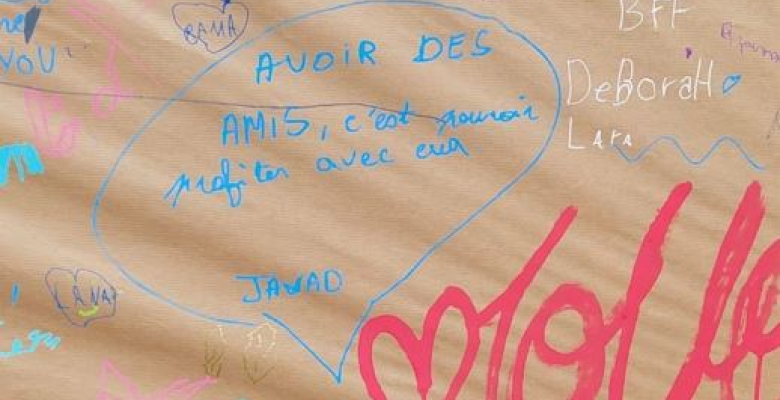 YOU
RAMA
AVOIR DES
AMIS, c'est pouvoir
profiter avec eux
JAWAD
BFF
DeBoraH
Lara
LANA